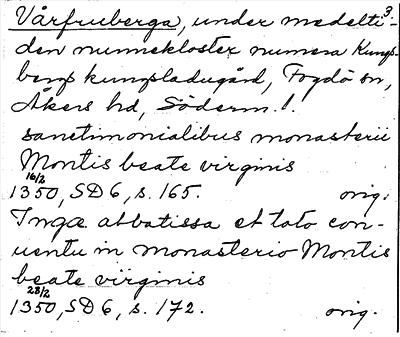 3.
Vårfruberga, under medelti-
den nunnekloster numera Kungs-
bergs kungsladugård, Fogdö sn,
Åkers hd, Söderm. l.
sanctimonialibus monasterii
Montis beate virginis
16/2
1350, SD 6, s. 165. orig.
Ingæ abbatissa et toto con-
uentu in monasterio Montis
beate virginis
28/2
1350, SD 6, s. 172. orig.